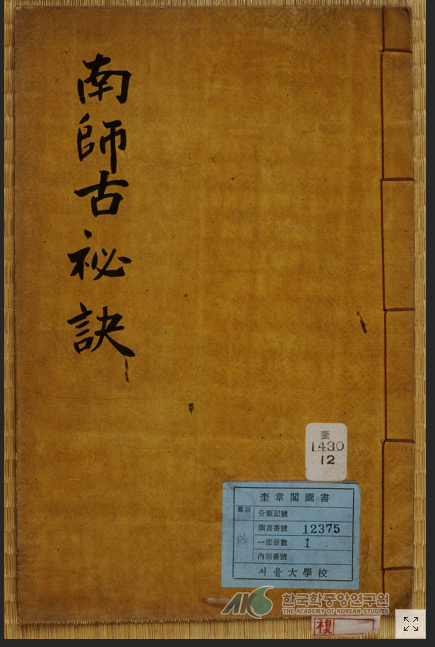 南師古祕訣
奎
1430
12
奎章閣圖書
分類記號
圖書番號 12375
一部冊數 1
內別番號
서울大學校
AKS 한국학중앙연구원
THE ACADEMY OF KOREAN STUDIES
複